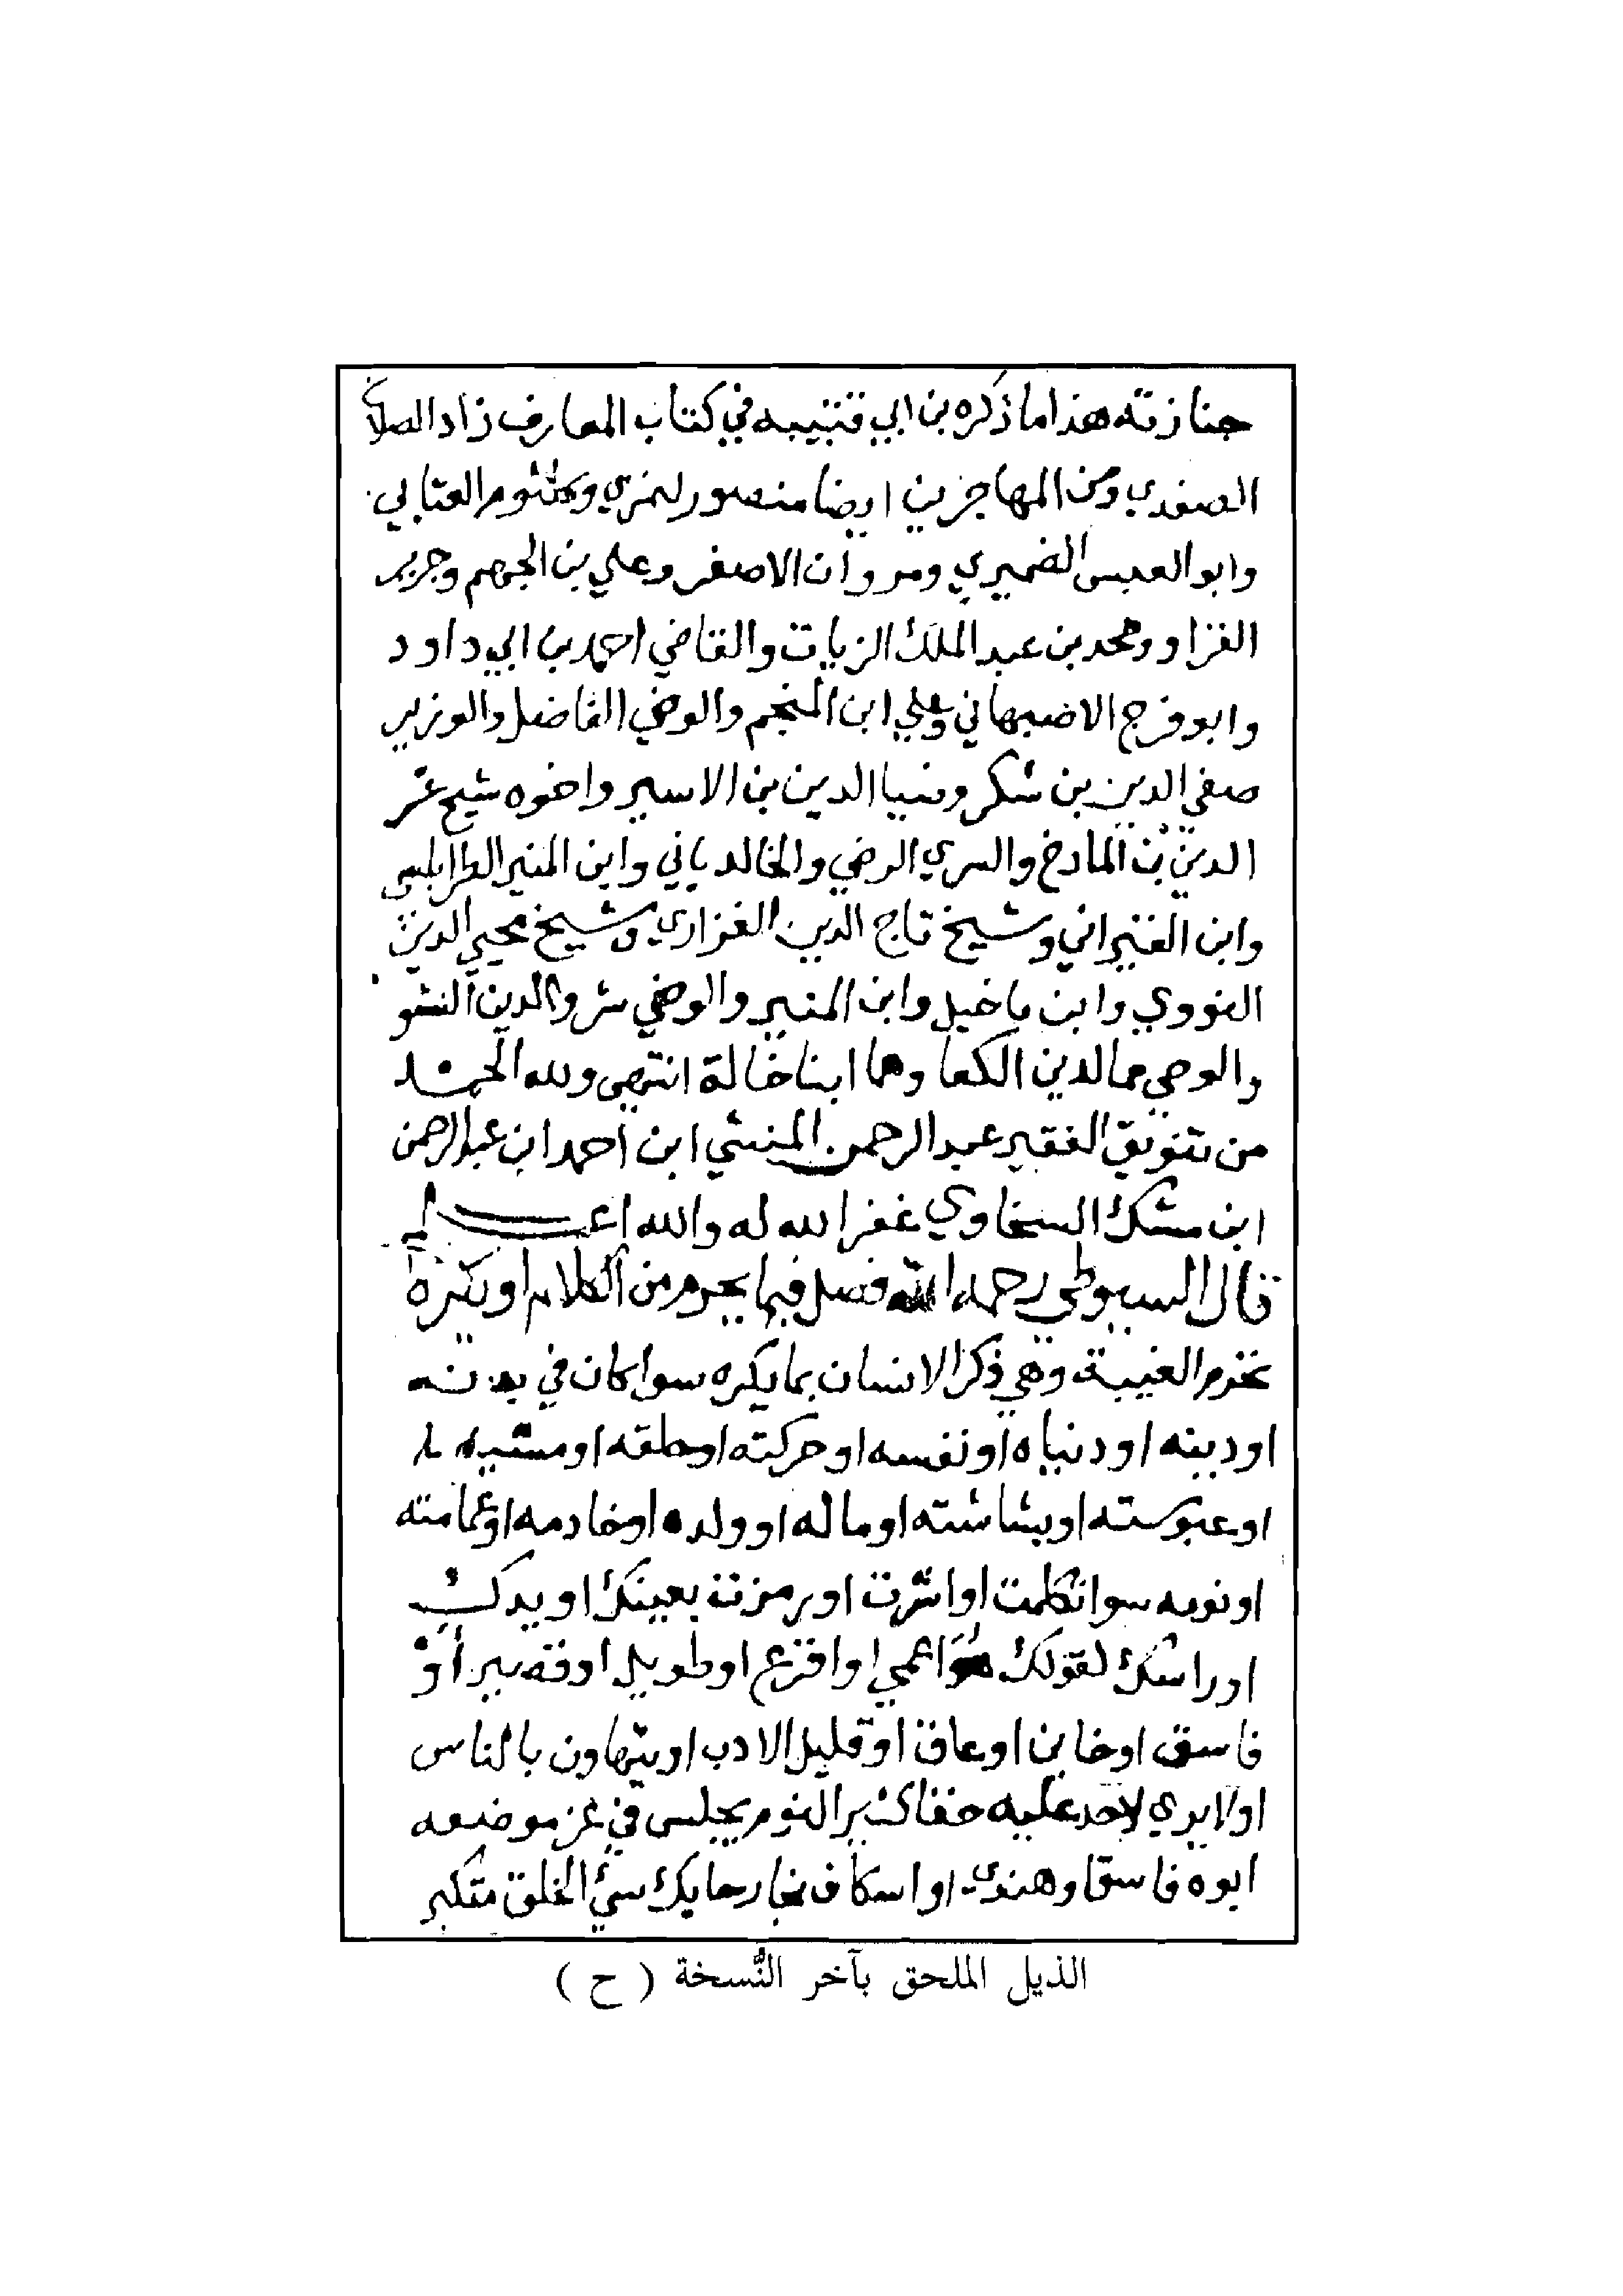 جنازته هذا ما ذكره بن ابي قتيبه في كتاب المعارف زاد الصلاح
الصفدي ومن المهاجرين ايضا منصور لنمري وكلثوم العتابي
وابو العبس الضميري ومروان الاصفر وعلي بن الجهم وجرير
الفزاو ومحمد بن عبد الملك الزيات والقاضي احمد بن ابي داود
وابو فرج الاصبهاني وعلي ابن المنجم والوضي الفاضل والوزير
صفي الدين بن شكر وضيا الدين بن الاسير واخوه شيخ عز
الدين بن المادخ والسري الرضي والخالد ياني وابن المنير الطرابلسي
وابن القيراني وشيخ تاج الدين الفزاري وشيخ محيي الدين
النووي وابن باخيل وابن المنير والوضي شرو الدين النشو
والوجي عما الدين الكعا وهما ابنا خالة انتهى ولله الحمد
من تفويق الفقير عبد الرحمن المنشي ابن احمد ابن عبد الرحمن
ابن مشك السخاوي غفر الله له والله اعلم
قال السيوطي رحمه الله فصل فيما يحرم من الكلام او يكره
تحرم الغيبة وهي ذكر الانسان بما يكره سوا كان في بدنه
او دينه او دنياه او نفسه او حركته او طلقه او مشيه
او عبوسته او بشاشته او ماله او ولده او خادمه او عمامته
او نوبه سوا تكلمت او اشرت او رمزت بعينك او يدك
او راسك لقولك هو اعمي او اقرع او طويل او قصير او
فاسق او خاين او عاق او قليل الادب او يتهاون بالناس
او لا يري لاحد عليه حقا كثير النوم يجلس في غير موضعه
ابوه فاسقا وهندي او اسكاف نجار حايك سئ الخلق متكبر
الذيل الملحق بآخر النُّسخة ( ح )